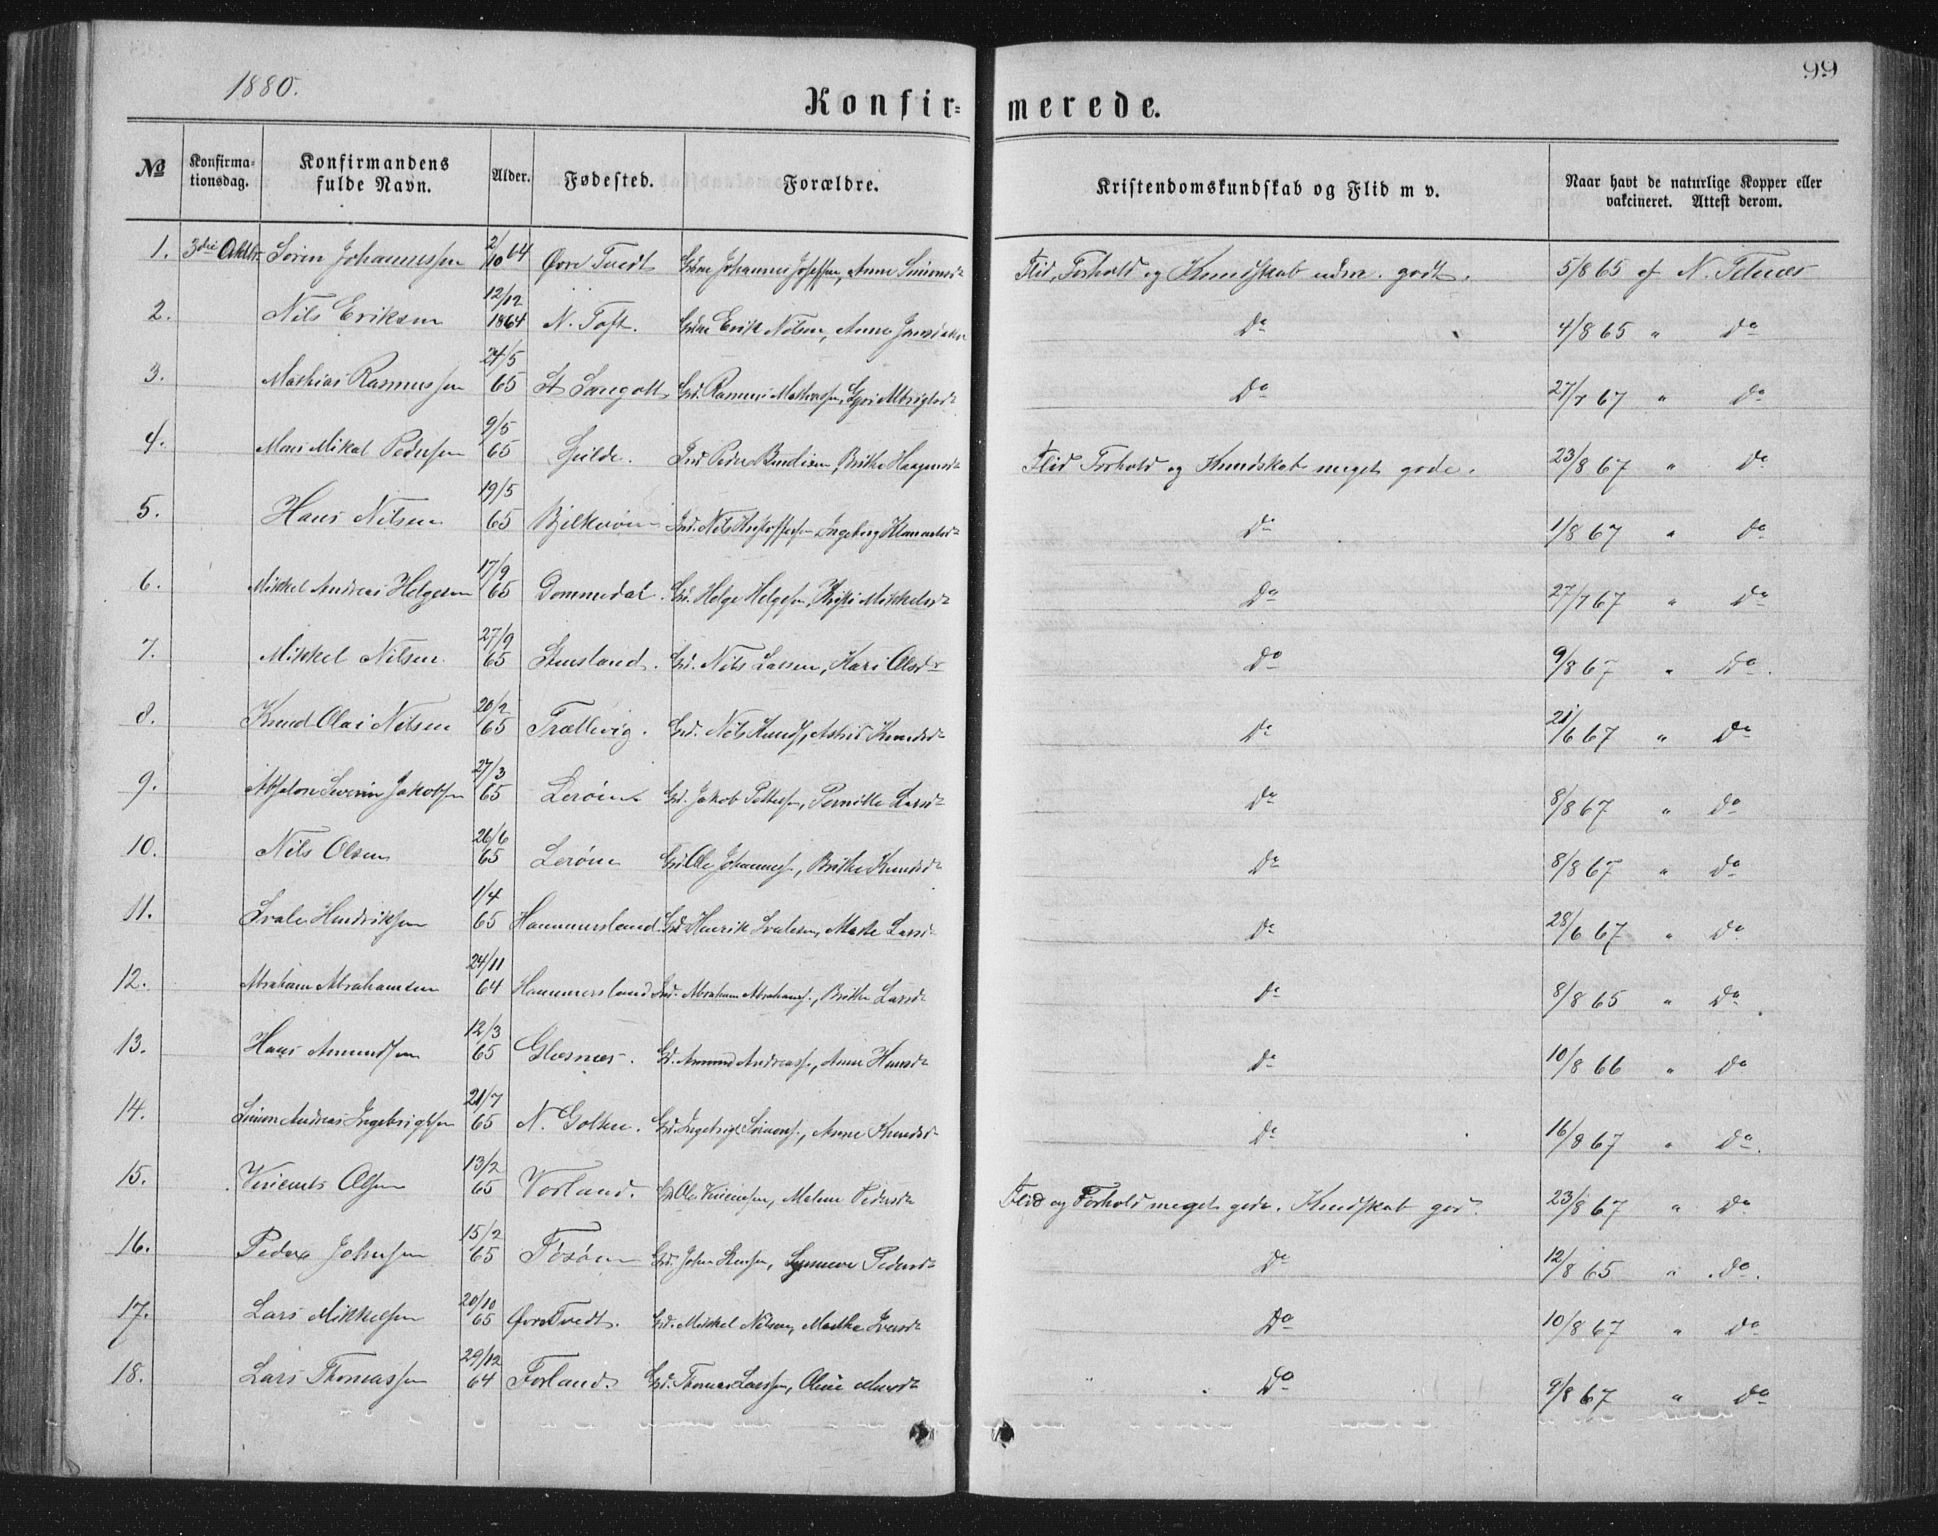 1880.
99
Konfir= merede.
No Konfirma= tionsdag. Konfirmandens fulde Navn. Alder. Fødested. Forældre. Kristendomskundskab og Flid m v. Naar havt de naturlige Kopper eller vakcineret. Attest derom.
1. 3die Oktbr. Sørin Johannessen 2/10 64 Øvre Tvedt Johannes Josefsen, Anne Simonsd. Flid, Forhold og Kundskab udm. godt. 5/8 65 af N. Titnes
2. Nils Eriksen 12/12 1864 N. Toft. Erik Nilsen, Anna 4/8 65 " Do Do
3. Mathias Rasmussen 24/5 65 St Sangolt Gd. Rasmus Mathiassen, Do 27/7 67 " Do
4. Mons Mikal Pedersen 9/5 65 Spilde. Peder Bendixen Brithe Haagensd. Flid Forhold og Kundskab meget gode. 23/8 67 " Do
5. Hans Nilsen 19/5 65 Bjelkerøen Nils Kristoffersen Ingeborg Do 1/8 67 " Do
6. Mikkel Andreas Helgesen 17/9 65 Dommedal. Gd. Helge Helgesen, Mikkelsd. Do 27/7 67 " Do
7. Mikkel Nilsen. 27/9 65 Stensland. Gd. Nils Larsen, Kari Olsdr Do 9/8 67 " Do.
8. Knud Olai Nilsen 20/2 65 Trællevig. Gd. Nils Knuds., Astrid Knudsd. Do 21/6 67 " Do
9. Absalon Severin Jakobsen 27/3 65 Lerøen Gd. Jakob Pettersen, Pernille Larsd. Do 8/8 67 " Do
10. Nils Olsen 26/6 65 Lerøen Gd. Ole Johanness., Brithe Knudsd. Do 8/8 67 " Do
11. Ivale Hendriksen 1/4 65 Hammersland. Gd. Henrik Ivalesen, Marte Larsd. Do 28/6 67 " Do
12. Abraham Abrahamsen 24/11 64 Hammersland Abraham Abrahams., Brithe Larsd. Do 8/8 65 " Do.
13. Hans Amundsen 12/3 65 Glesnes. Gd. Amund Andreass., Anne Hansd. Do 10/8 66 " Do
14. Simon Andreas Ingebrigtsen 21/7 65 N. Golten. Gd. Ingebrigt Simons., Anne Knudsd. Do 16/8 67 " Do.
15. Vincents Olsen 13/2 65 Vorland. Gd. Ole Vincentsen, Malene Pedersd. Flid og Forhold meget gode. Kundskab god. 23/8 67 " Do
16. Peder Johnsen 15/2 65 Tøsøen Gd. John Synneve Pedersd. Do 12/8 65 " Do.
17. Lars Mikkelsen 20/10 65 Øvre Tvedt. Gd. Mikkel Nilsen, Marthe Iversd. Do 10/8 67 " Do
18. Lars Thomassen 29/12 64 Forland. Gd. Thomas Larssen, Oline Do 9/8 67 " Do